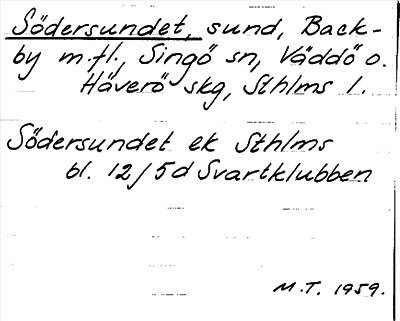 Södersundet, sund, Back-
by m.fl., Singö sn, Väddö o.
Häverö skg, Sthlms l.
Södersundet ek Sthlms
bl. 12/5d Svartklubben
M.T. 1959.